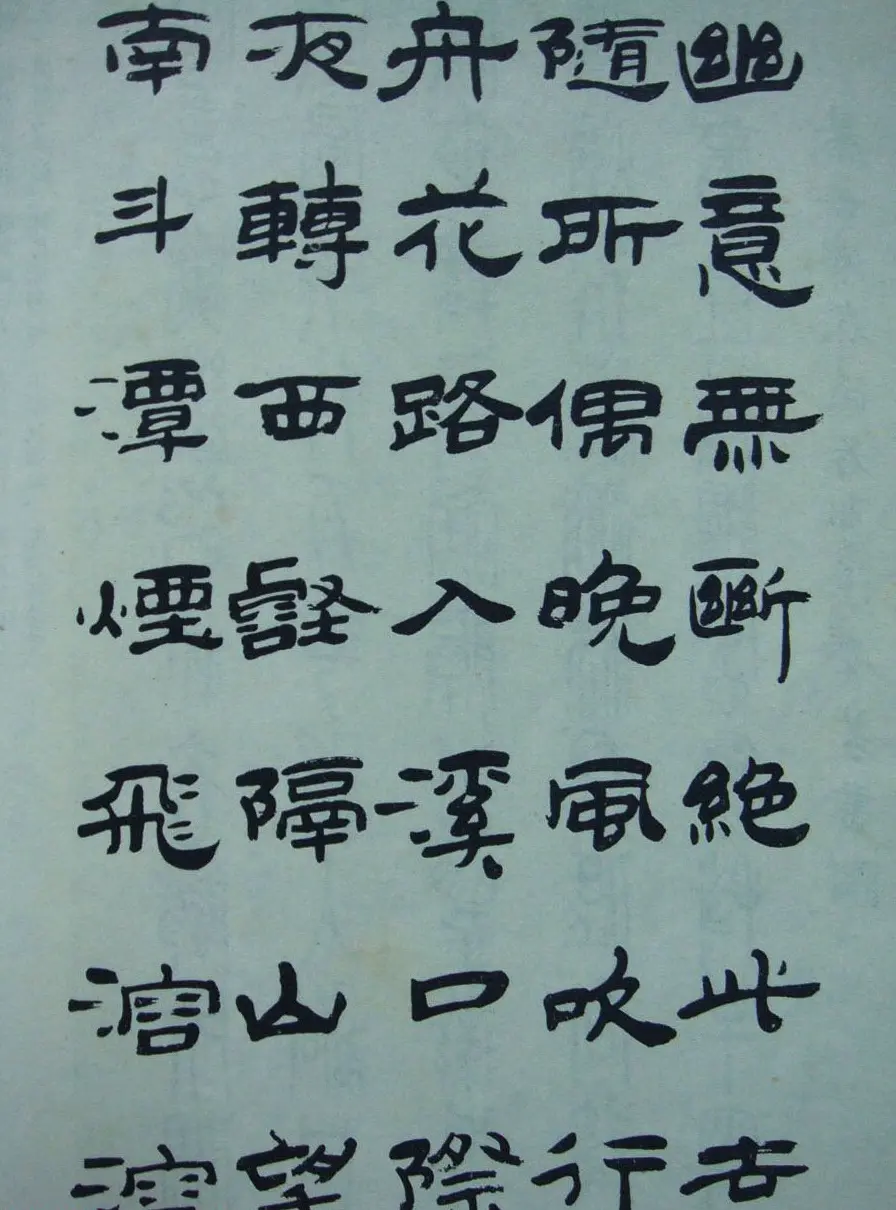 幽意無斷絕此去
隨所偶晚風吹行
舟花路入溪口際
夜轉西壑隔山望
南斗潭煙飛溶溶